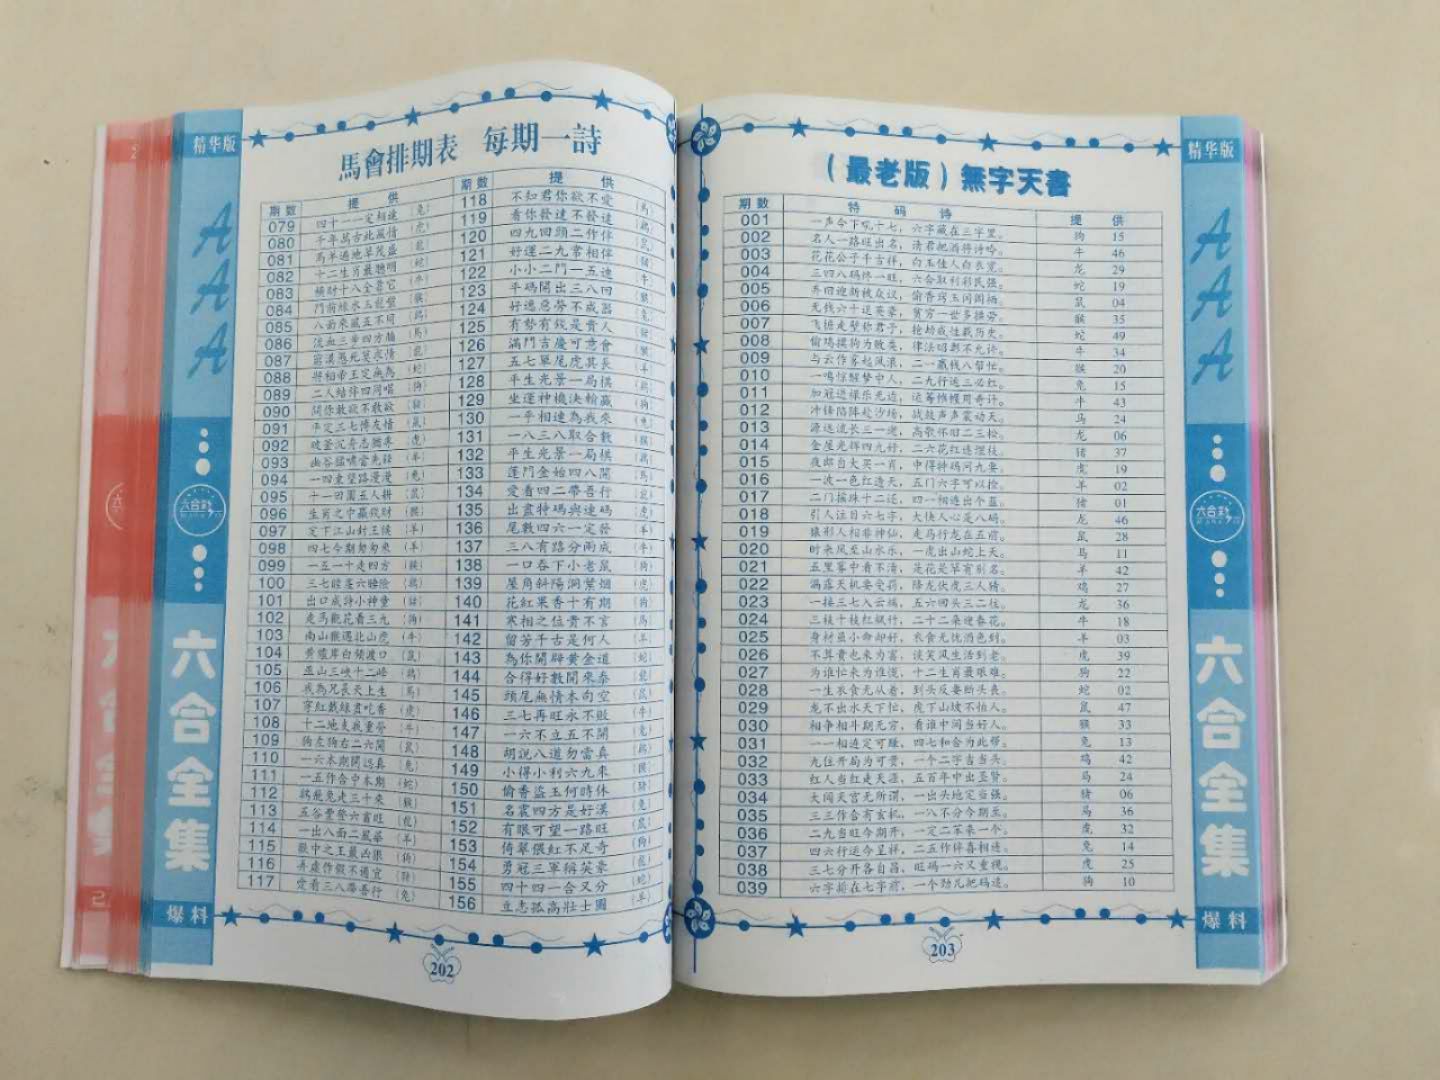 精华版
馬會排期表 每期一詩
期數 提供
079 四十一一定相連 (兔)
080 千年萬古北風情 (虎)
081 馬羊遍地草茂盛 (龍)
082 十二生肖最聰明 (蛇)
083 橫財十八全靠它 (牛)
084 門前綠水 (猴)
085 八面來風五不同 (鷄)
086 流血三步四方腦 (馬)
087 (龍)
088 將相帝王定無為 (蛇)
089 二人結伴四同唱 (狗)
090 問你敢欲不敢欲 (豬)
091 平定三七博友情 (鼠)
092 破釜沉舟志 (虎)
093 幽谷猛嘯當先鋒 (羊)
094 一四東望路漫漫 (兔)
095 十一四圍五人耕 (鼠)
096 生肖之中贏錢財 (猴)
097 定下江山封王候 (羊)
098 四七今期匆匆來 (羊)
099 一五一十走四方 (猴)
100 三七 六曉險 (鷄)
101 出口成詩小神童 (豬)
102 走馬觀花看三九 (狗)
103 南山猴遇北山虎 (牛)
104 黃爐岸白領渡口 (鼠)
105 巫山三峽十二峰 (鷄)
106 我為兄長天上生 (馬)
107 穿紅戴綠賞吃香 (虎)
108 十二地支我重勞 (牛)
109 狗左狗右二六開 (鼠)
110 一六本期開認真 (兔)
111 一五作合中本期 (蛇)
112 鷄飛兔走三千來 (猴)
113 五谷豐登六畜旺 (龍)
114 一出八面二風華 (羊)
115 獸中之王最凶狠 (狗)
116 弄虛作假不適宜 (豬)
117 愛看三八帶吾行 (兔)
期數 提供
118 不知君你欲不愛 (馬)
119 看你發達不發達 (鷄)
120 四九回頭二作伴 (鼠)
121 好運二九常相伴 (豬)
122 小小二門一五連 (牛)
123 平碼開出三八四 (猴)
124 好逸惡勞不成器 (兔)
125 有勢有錢是貴人 (豬)
126 滿門吉慶可意會 (猴)
127 五七單尾虎其長 (羊)
128 平生光景一局棋 (鷄)
129 坐運神機決輸贏 (狗)
130 一平相連為我來 (兔)
131 一八三八取合數 (猴)
132 平生光景一局棋 (鷄)
133 蓬門金始四八開 (馬)
134 愛看四二帶吾行 (龍)
135 出賣特碼與連碼 (虎)
136 尾數四六一定發 (羊)
137 三八有路分兩成 (牛)
138 一口吞下小老鼠 (狗)
139 屋角斜陽洞葉烟 (虎)
140 花紅果香十有期 (狗)
141 寒相之位貴不言 (馬)
142 留芳千古是何人 (羊)
143 為你開辟黃金道 (蛇)
144 合得好數開來泰 (龍)
145 頭尾無情本向空 (鼠)
146 三七再旺永不敗 (牛)
147 一六不立五不開 (兔)
148 胡說八道勿當真 (鷄)
149 小得小利六九來 (猴)
150 偷香盜玉何時休 (豬)
151 名震四方是好漢 (兔)
152 有眼可望一路旺 (鼠)
153 倚翠偎紅不足奇 (狗)
154 勇冠三軍稱英豪 (龍)
155 四十四一合又分 (蛇)
156 立志孤高壯士圖 (羊)
六合彩
六合全集
爆料
202
精华版
(最老版)無字天書
期數 特码诗 提供
001 一声令下吼十七,六字藏在三字里。 狗 15
002 名人一路旺出名,请君把酒将诗吟。 牛 46
003 花花公子千古祥,白玉佳人白衣宽。 龙 29
004 三四八码俫一旺,六合取利彩民强。 蛇 19
005 弃旧迎新被众议,偷香窃玉闲闺栖。 鼠 04
006 无钱六十送英豪,贫穷一世多操劳。 猴 35
007 飞檐走壁称君子,抢劫成性载历史。 蛇 49
008 偷鸡摸狗为败类,律法昭彰不允许。 牛 34
009 与云作雾起风浪,二一赢钱八帮忙。 猴 20
010 一鸣惊醒梦中人,二九行运三必红。 兔 15
011 加冠进禄乐无边,运筹帷幄用奇计。 牛 43
012 冲锋陷阵赴沙场,战鼓声声震动天。 马 24
013 源远流长三一避,高歌怀旧二三松。 龙 06
014 金屋光辉四九好,二六花红连理枝。 猪 37
015 夜郎自大买一肖,中得特码问九要。 虎 19
016 一波一色红透天,五门六字可以捡。 羊 02
017 二门摇珠十二还,四一相连出个蓝。 猪 01
018 引人注目六七字,大快人心是八码。 龙 46
019 猿形人相非神仙,走马行龙在五前。 鼠 28
020 时来风至山水乐,一虎出山蛇上天。 马 11
021 五里雾中看不清,是花是草有别名。 羊 42
022 漏露天机要受罚,降龙伏虎三人猜。 鸡 27
023 一接三七入云端,五六回头三二住。 龙 36
024 三枝十枝红枫竹,二十二朵迎春花。 牛 18
025 身材虽小命却好,衣食无忧酒色到。 羊 03
026 不算贵也来为富,谈笑风生活到老。 虎 39
027 为谁忙来为谁慌,十二生肖最艰难。 狗 22
028 一生衣食无从着,到头反要断头丧。 蛇 02
029 龙不出水天下怕,虎下山坡不怕人。 鼠 47
030 相争相斗期无穷,看谁中间当好人。 猴 33
031 一一相连定可赚,四七和合为此帮。 兔 13
032 九位开局为可贵,一个二字当当头。 鸡 42
033 红人当红走天涯,五百年中出圣贤。 马 24
034 大闹天宫无所谓,一出头地定当强。 猪 06
035 三三作合有玄机,一八不分今期至。 马 36
036 二九当旺今期开,一定二苯来一个。 虎 32
037 四六行运今呈祥,二五作伴喜相逢。 兔 14
038 三七分开各自昌,旺码一六又重视。 虎 25
039 六字前在七字前,一个劲儿把码追。 狗 10
AAA
六合彩
六合全集
爆料
203